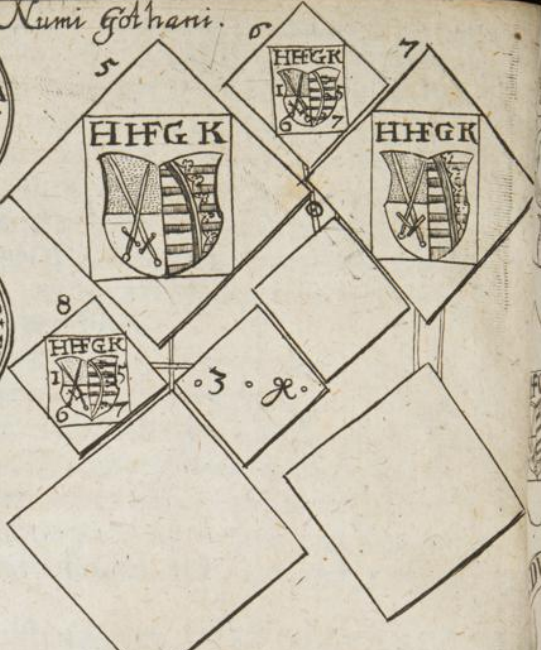 Numi Gothani.
5
HHFGK
6
HHFGK
15
67
7
HHFGK
8
HHFGK
15
67
· 3 ·